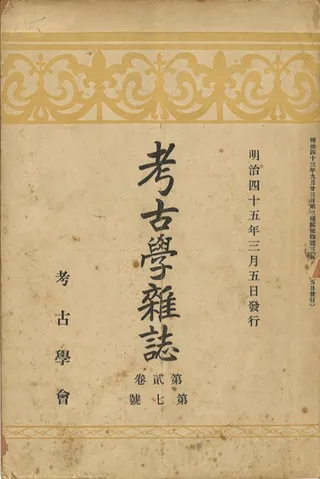 明治四十五年三月五日發行
考古學雜誌
第貳卷
第七號
考古學會